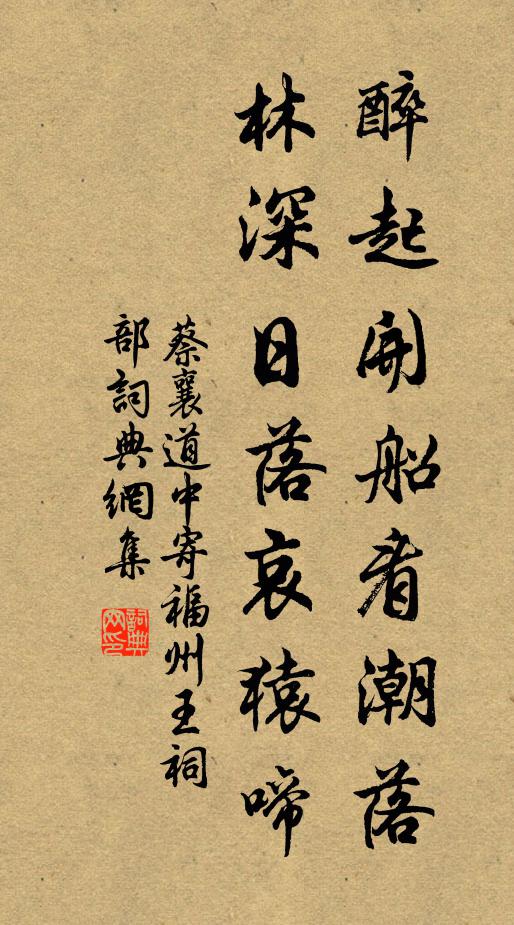 醉起開船看潮落
林深日落哀猿啼
蔡襄道中寄福州王祠
部詞典網集
詞典
网印